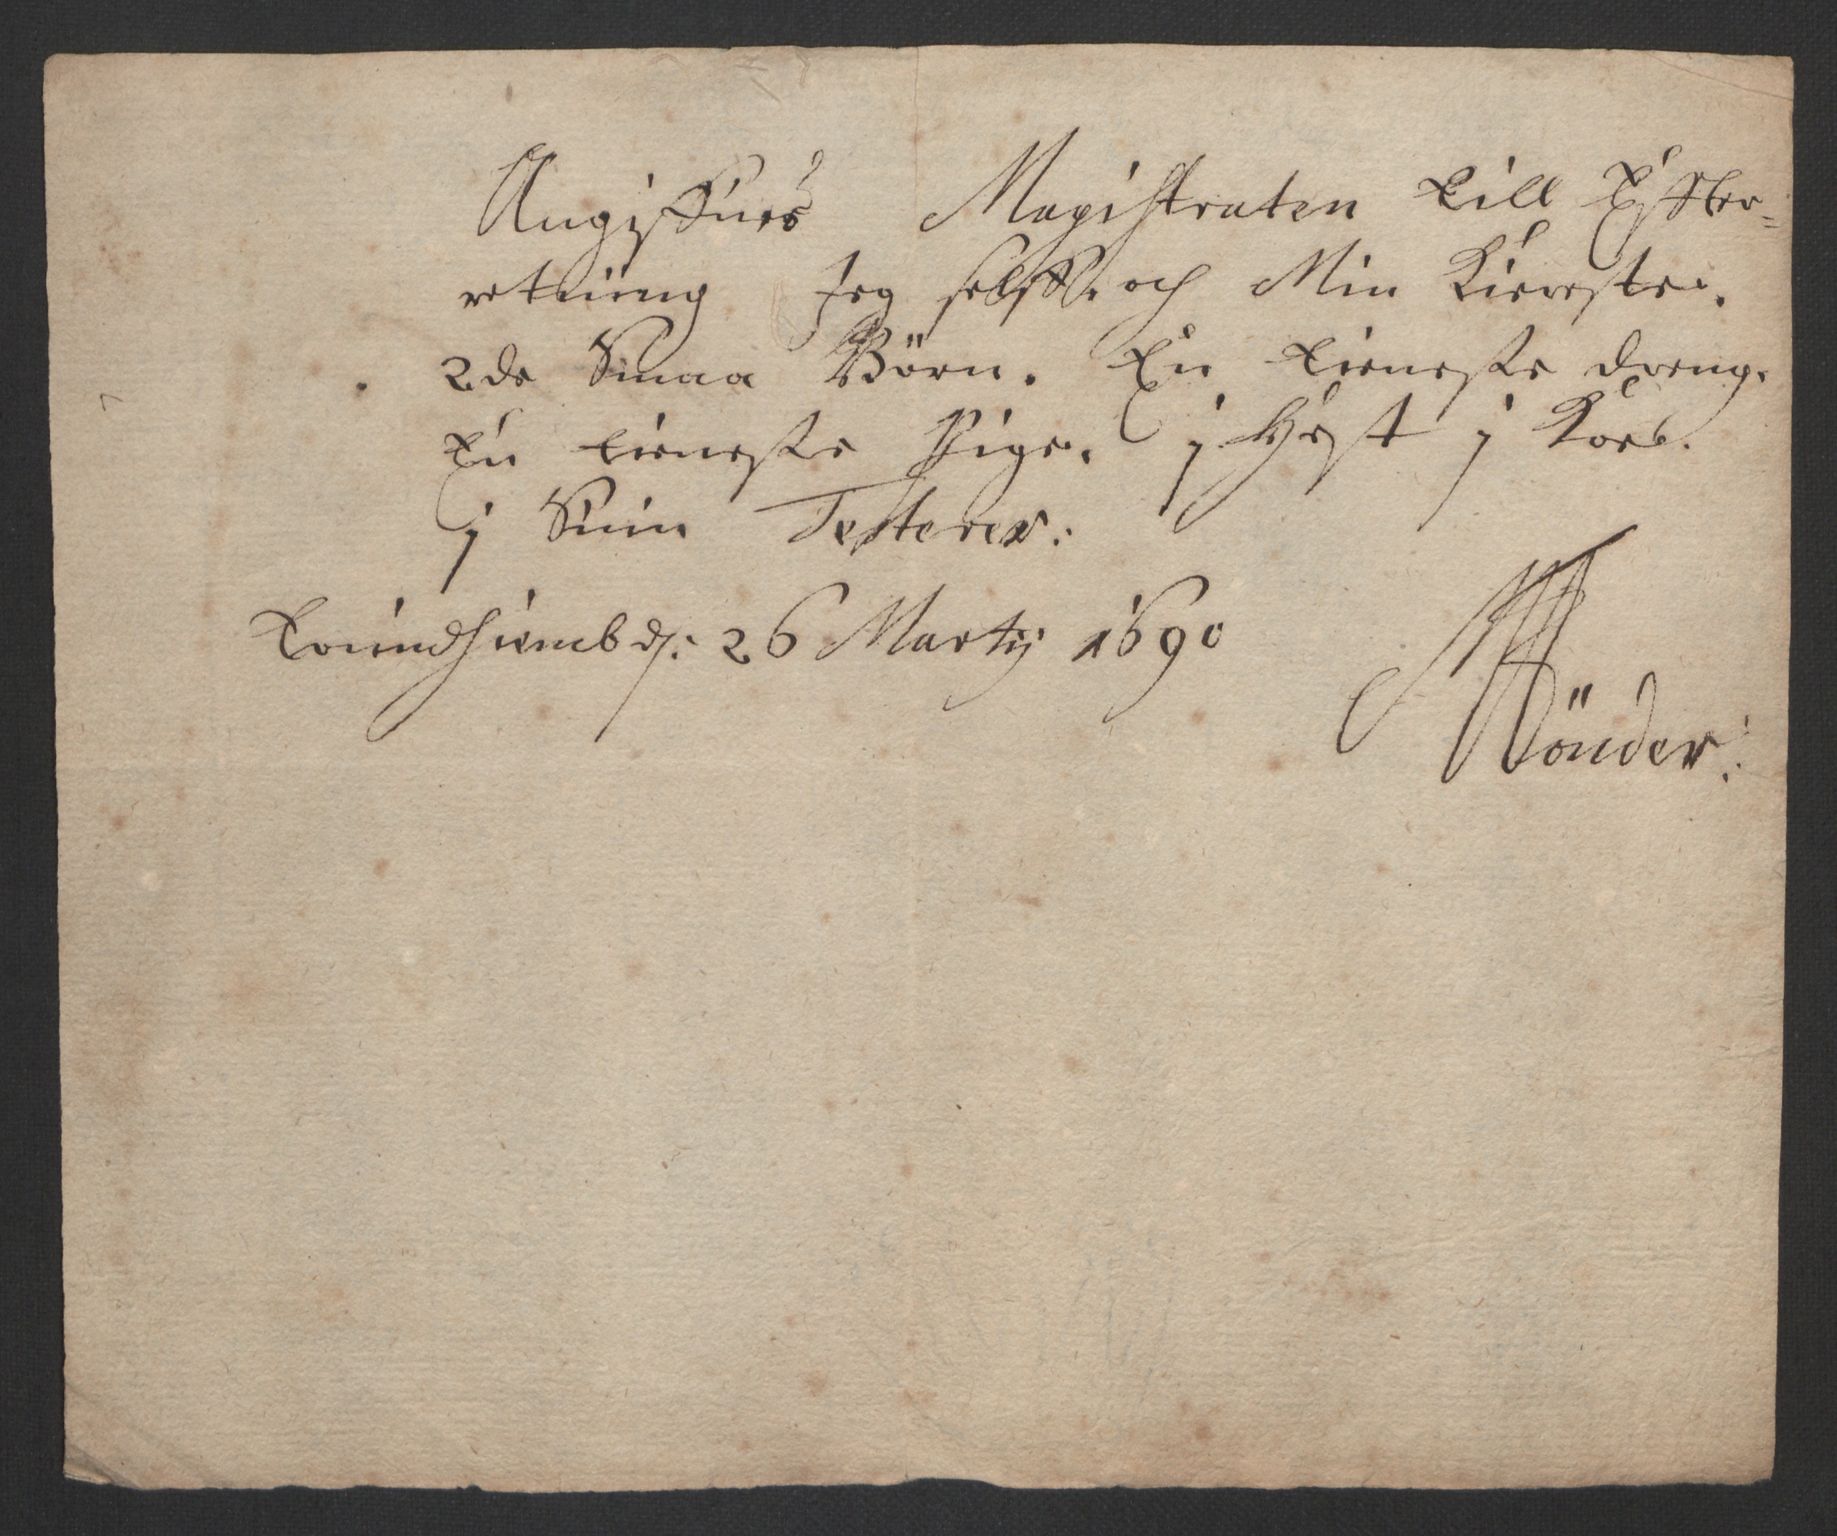 Angifues Magistraten till Effter=
retning Jeg selff. och Min Kiereste.
2de Smaa Börn. En tieneste dreng.
En tieneste Pige. j Hest j Koe.
j Suin Testerer.
Trundhiemb d: 26 Martij 1690
Tönder: